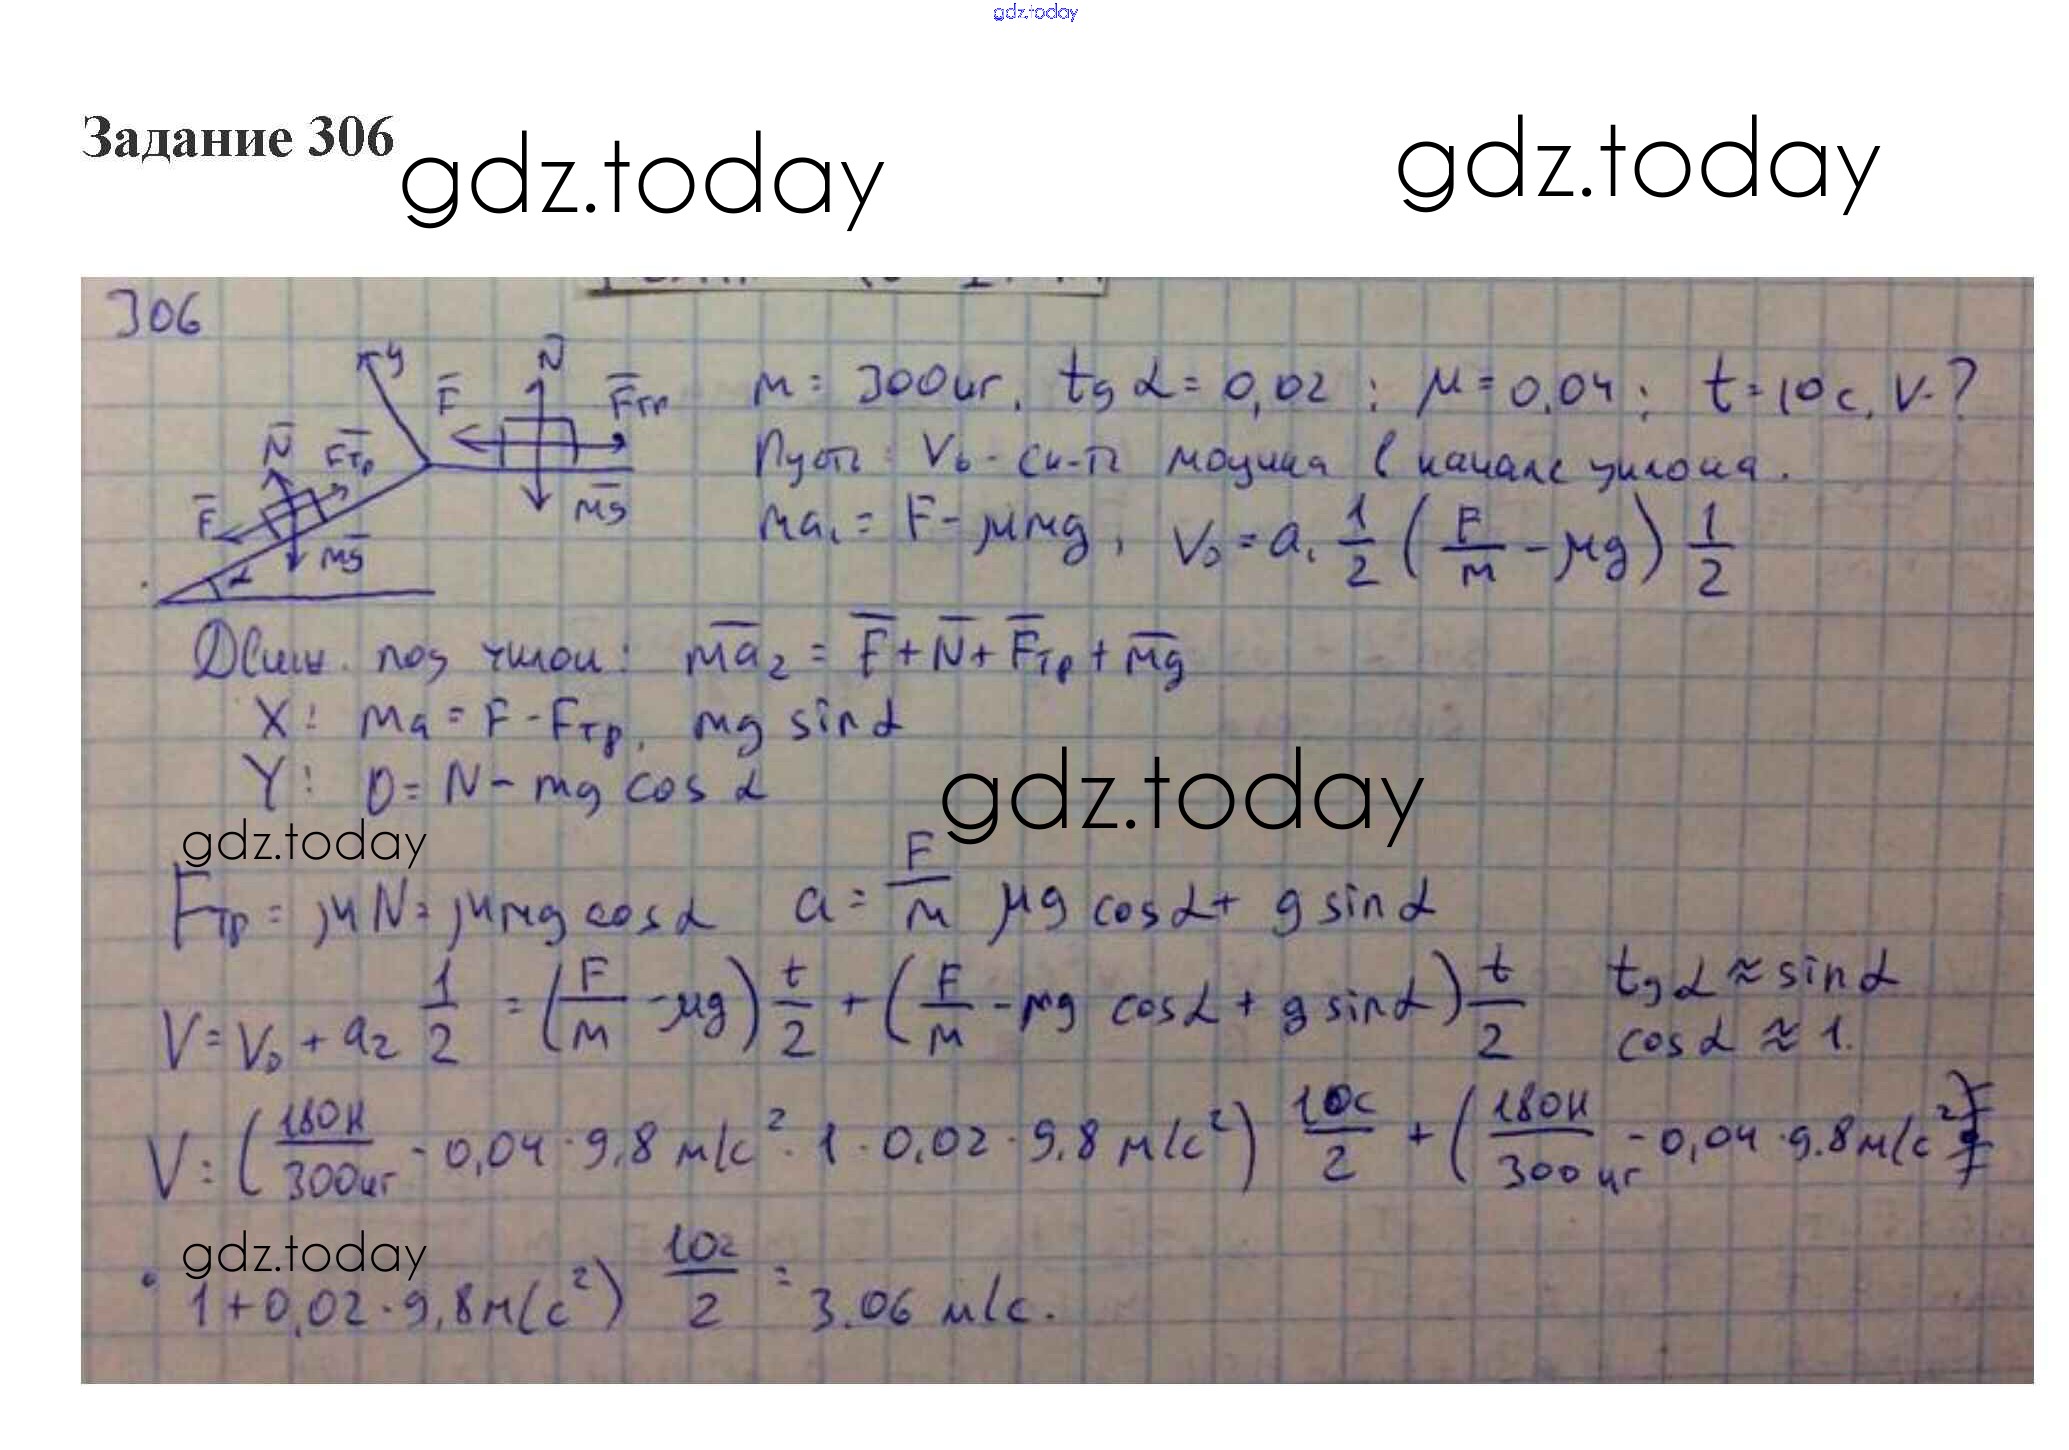 gdz.today
Задание 306
gdz.today
gdz.today
306
y
F̅ N̅ F̅тр
N̅ F̅тр
F̅ mg̅ α
mg̅
m = 300 кг, tg α = 0,02 ; μ = 0,04 ; t = 10 с, V - ?
Пусть: V₀ - ск-ть мотоцикла в начале уклона.
ma₁ = F - μmg, V₀ = a₁ 1/2 (F/m - μg) 1/2
Движ. под уклон: m̅a̅₂ = F̅ + N̅ + F̅тр + m̅g̅
X: ma = F - Fтр, mg sin α
Y: 0 = N - mg cos α
gdz.today
gdz.today
Fтр = μN = μmg cos α a = F/m μg cos α + g sin α
V = V₀ + a₂ 1/2 = (F/m - μg) t/2 + (F/m - μg cos α + g sin α) t/2 tg α ≈ sin α
cos α ≈ 1.
V = (180Н/300кг - 0,04 · 9,8 м/с² · 1 · 0,02 · 9,8 м/с²) 10с/2 + (180Н/300кг - 0,04 · 9.8 м/с²
gdz.today
· 1 + 0,02 · 9,8 м/с²) 10с/2 = 3.06 м/с.